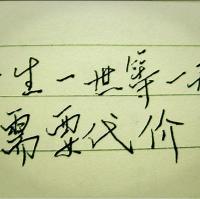 一生一世等一
需要代价